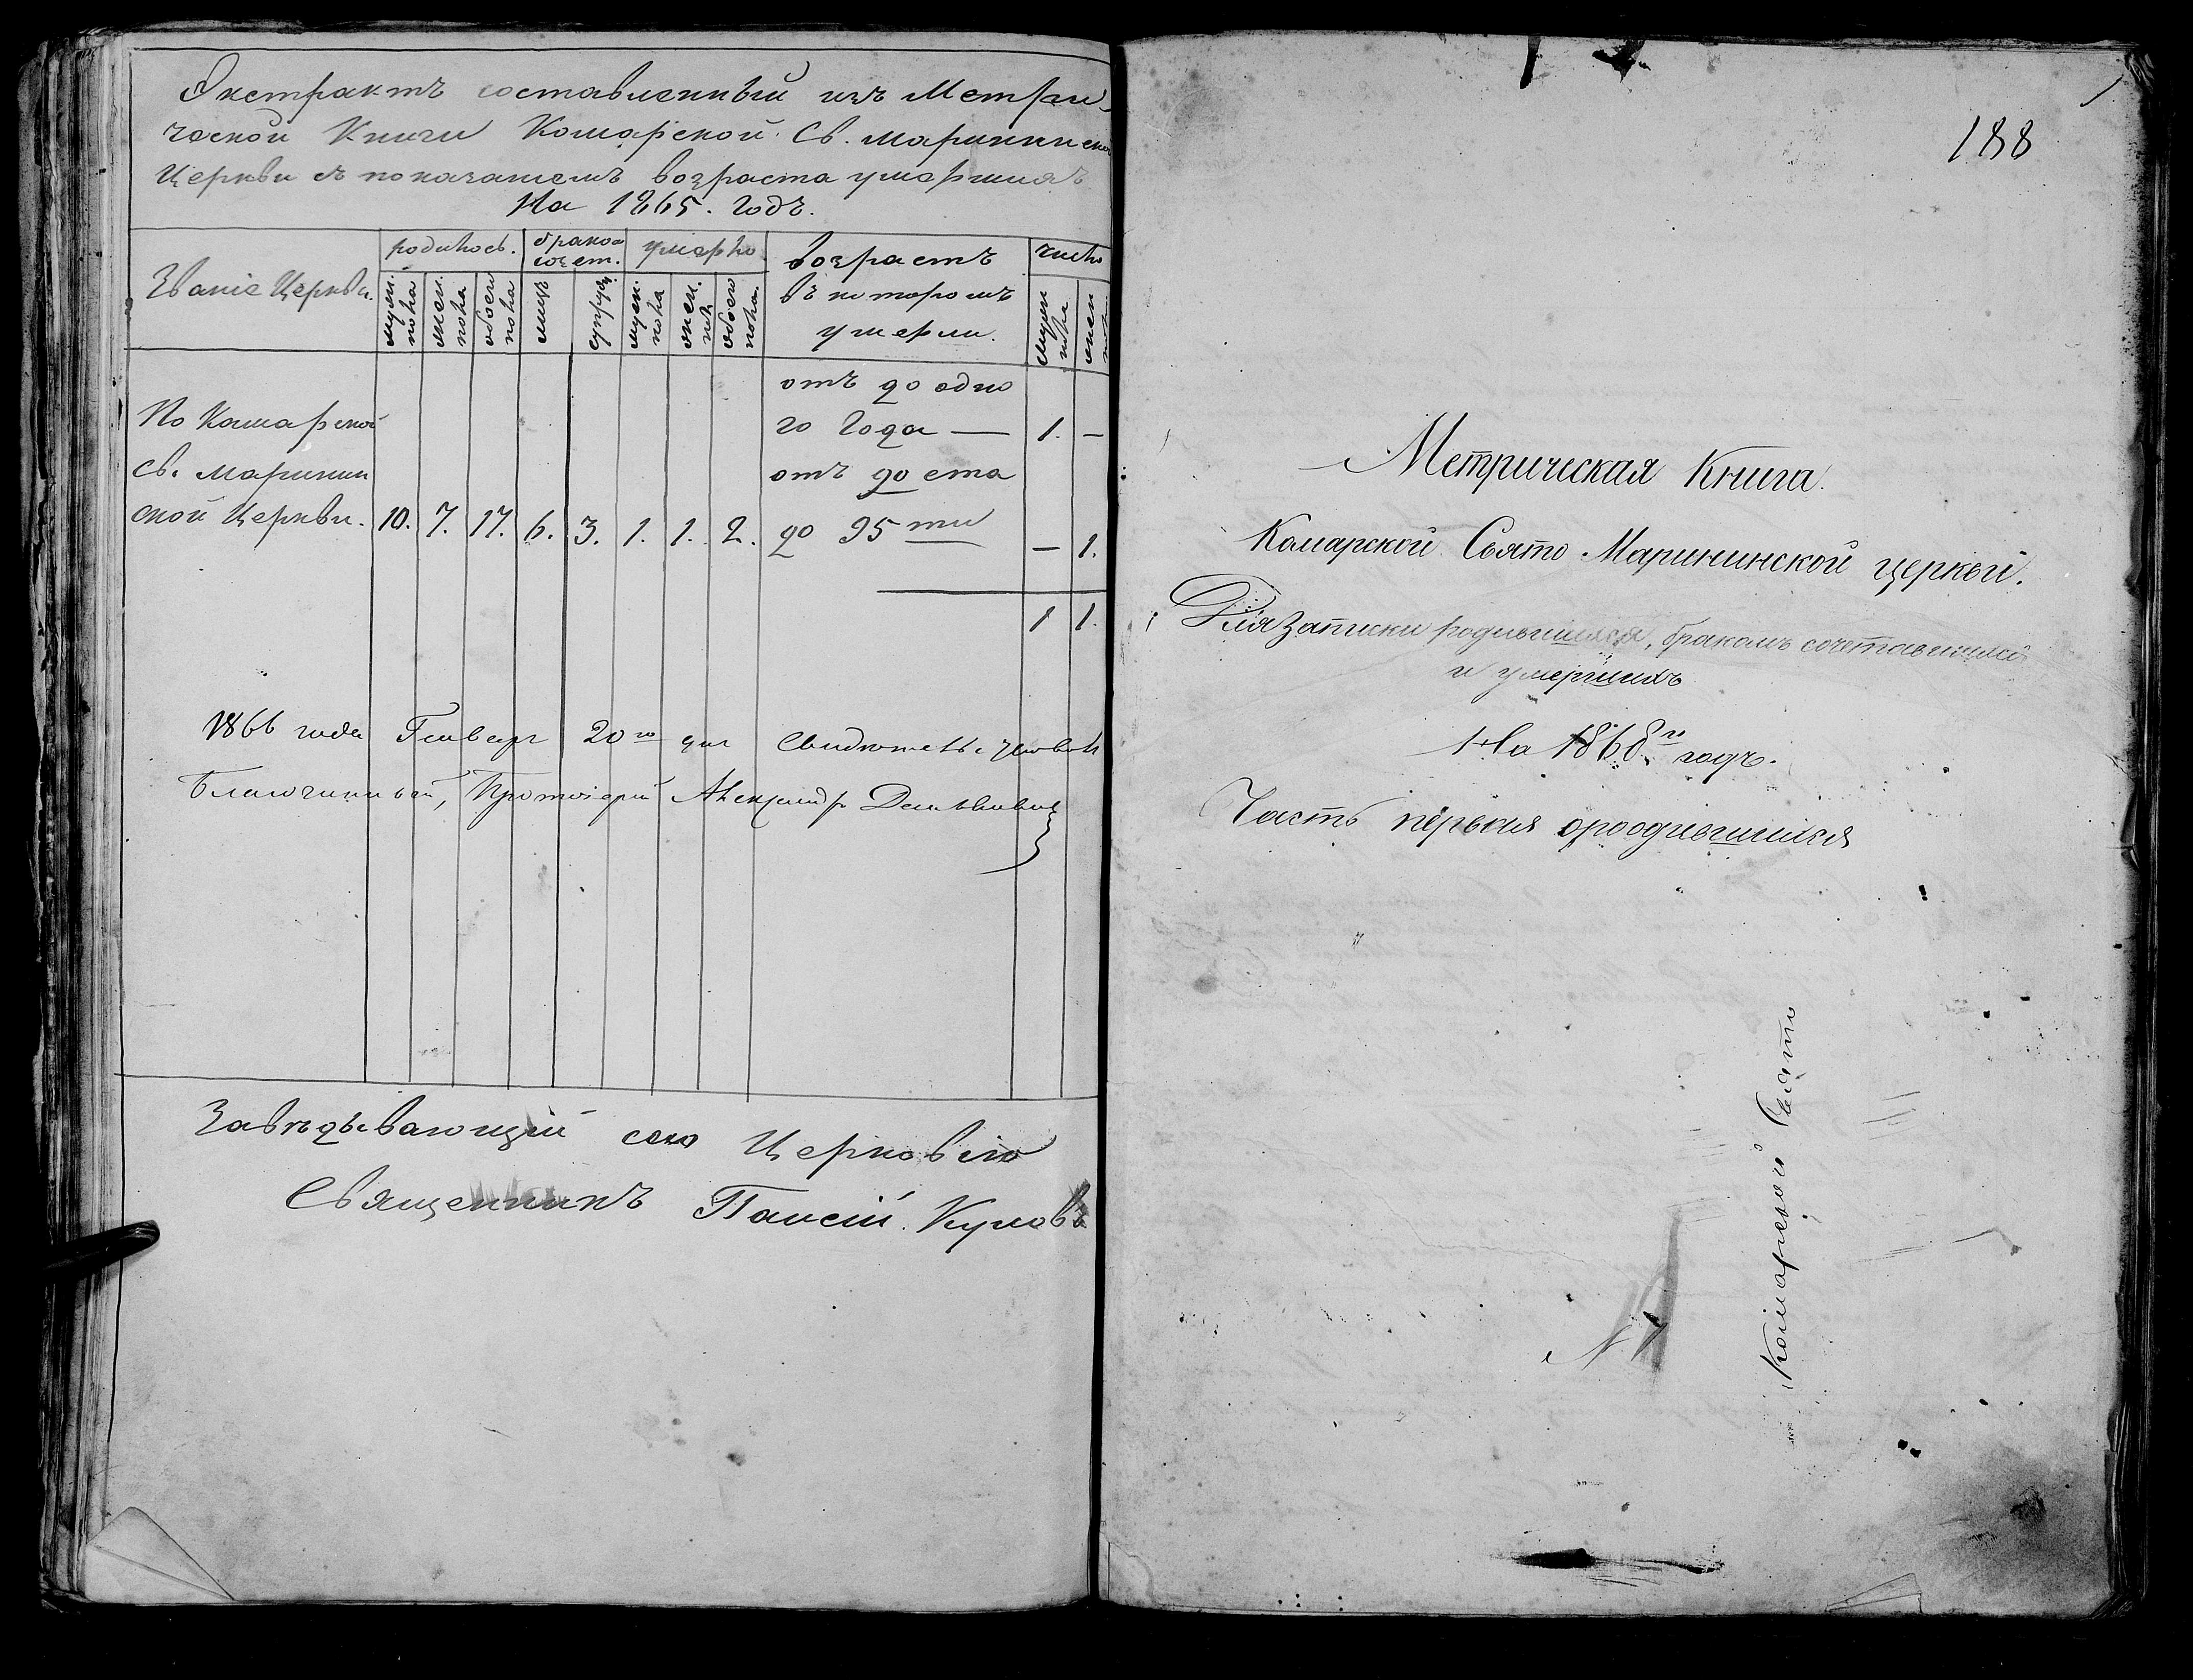 Экстрактъ составленный изъ Метри
ческой Книги Комарской Св. Марининской
Церкви съ показанiемъ возраста умершихъ
На 1865. Годъ.
Званiе Церкви.
родилось.
бракосочет.
умерло
Возрастъ
въ которомъ
умерли.
число
муж. пола
жен. пола
обоего пола
лицъ
супруж
муж. пола
жен. пол.
обоего пола.
муж пола
жен
По Комарской
Св. Маринин
ской Церкви. 10. 7. 17. 6. 3. 1. 1. 2.
отъ до одно
го Года — 1. —
отъ до ста
до 95 ти — 1.
1 1.
1866 года Генваря 20 го дня Свидетельствовалъ
Благочинный, Протоiерей Александръ
Завѣдывающiй сею Церковiю
Священникъ Паисiй
188
Метрическая Книга.
Комарской Свято Марининской церкви.
Для записки родившихся, бракомъ сочетавшихся
и умершихъ
На 1868 й годъ.
Часть первая ородившихся
Комарской Свято
N 1